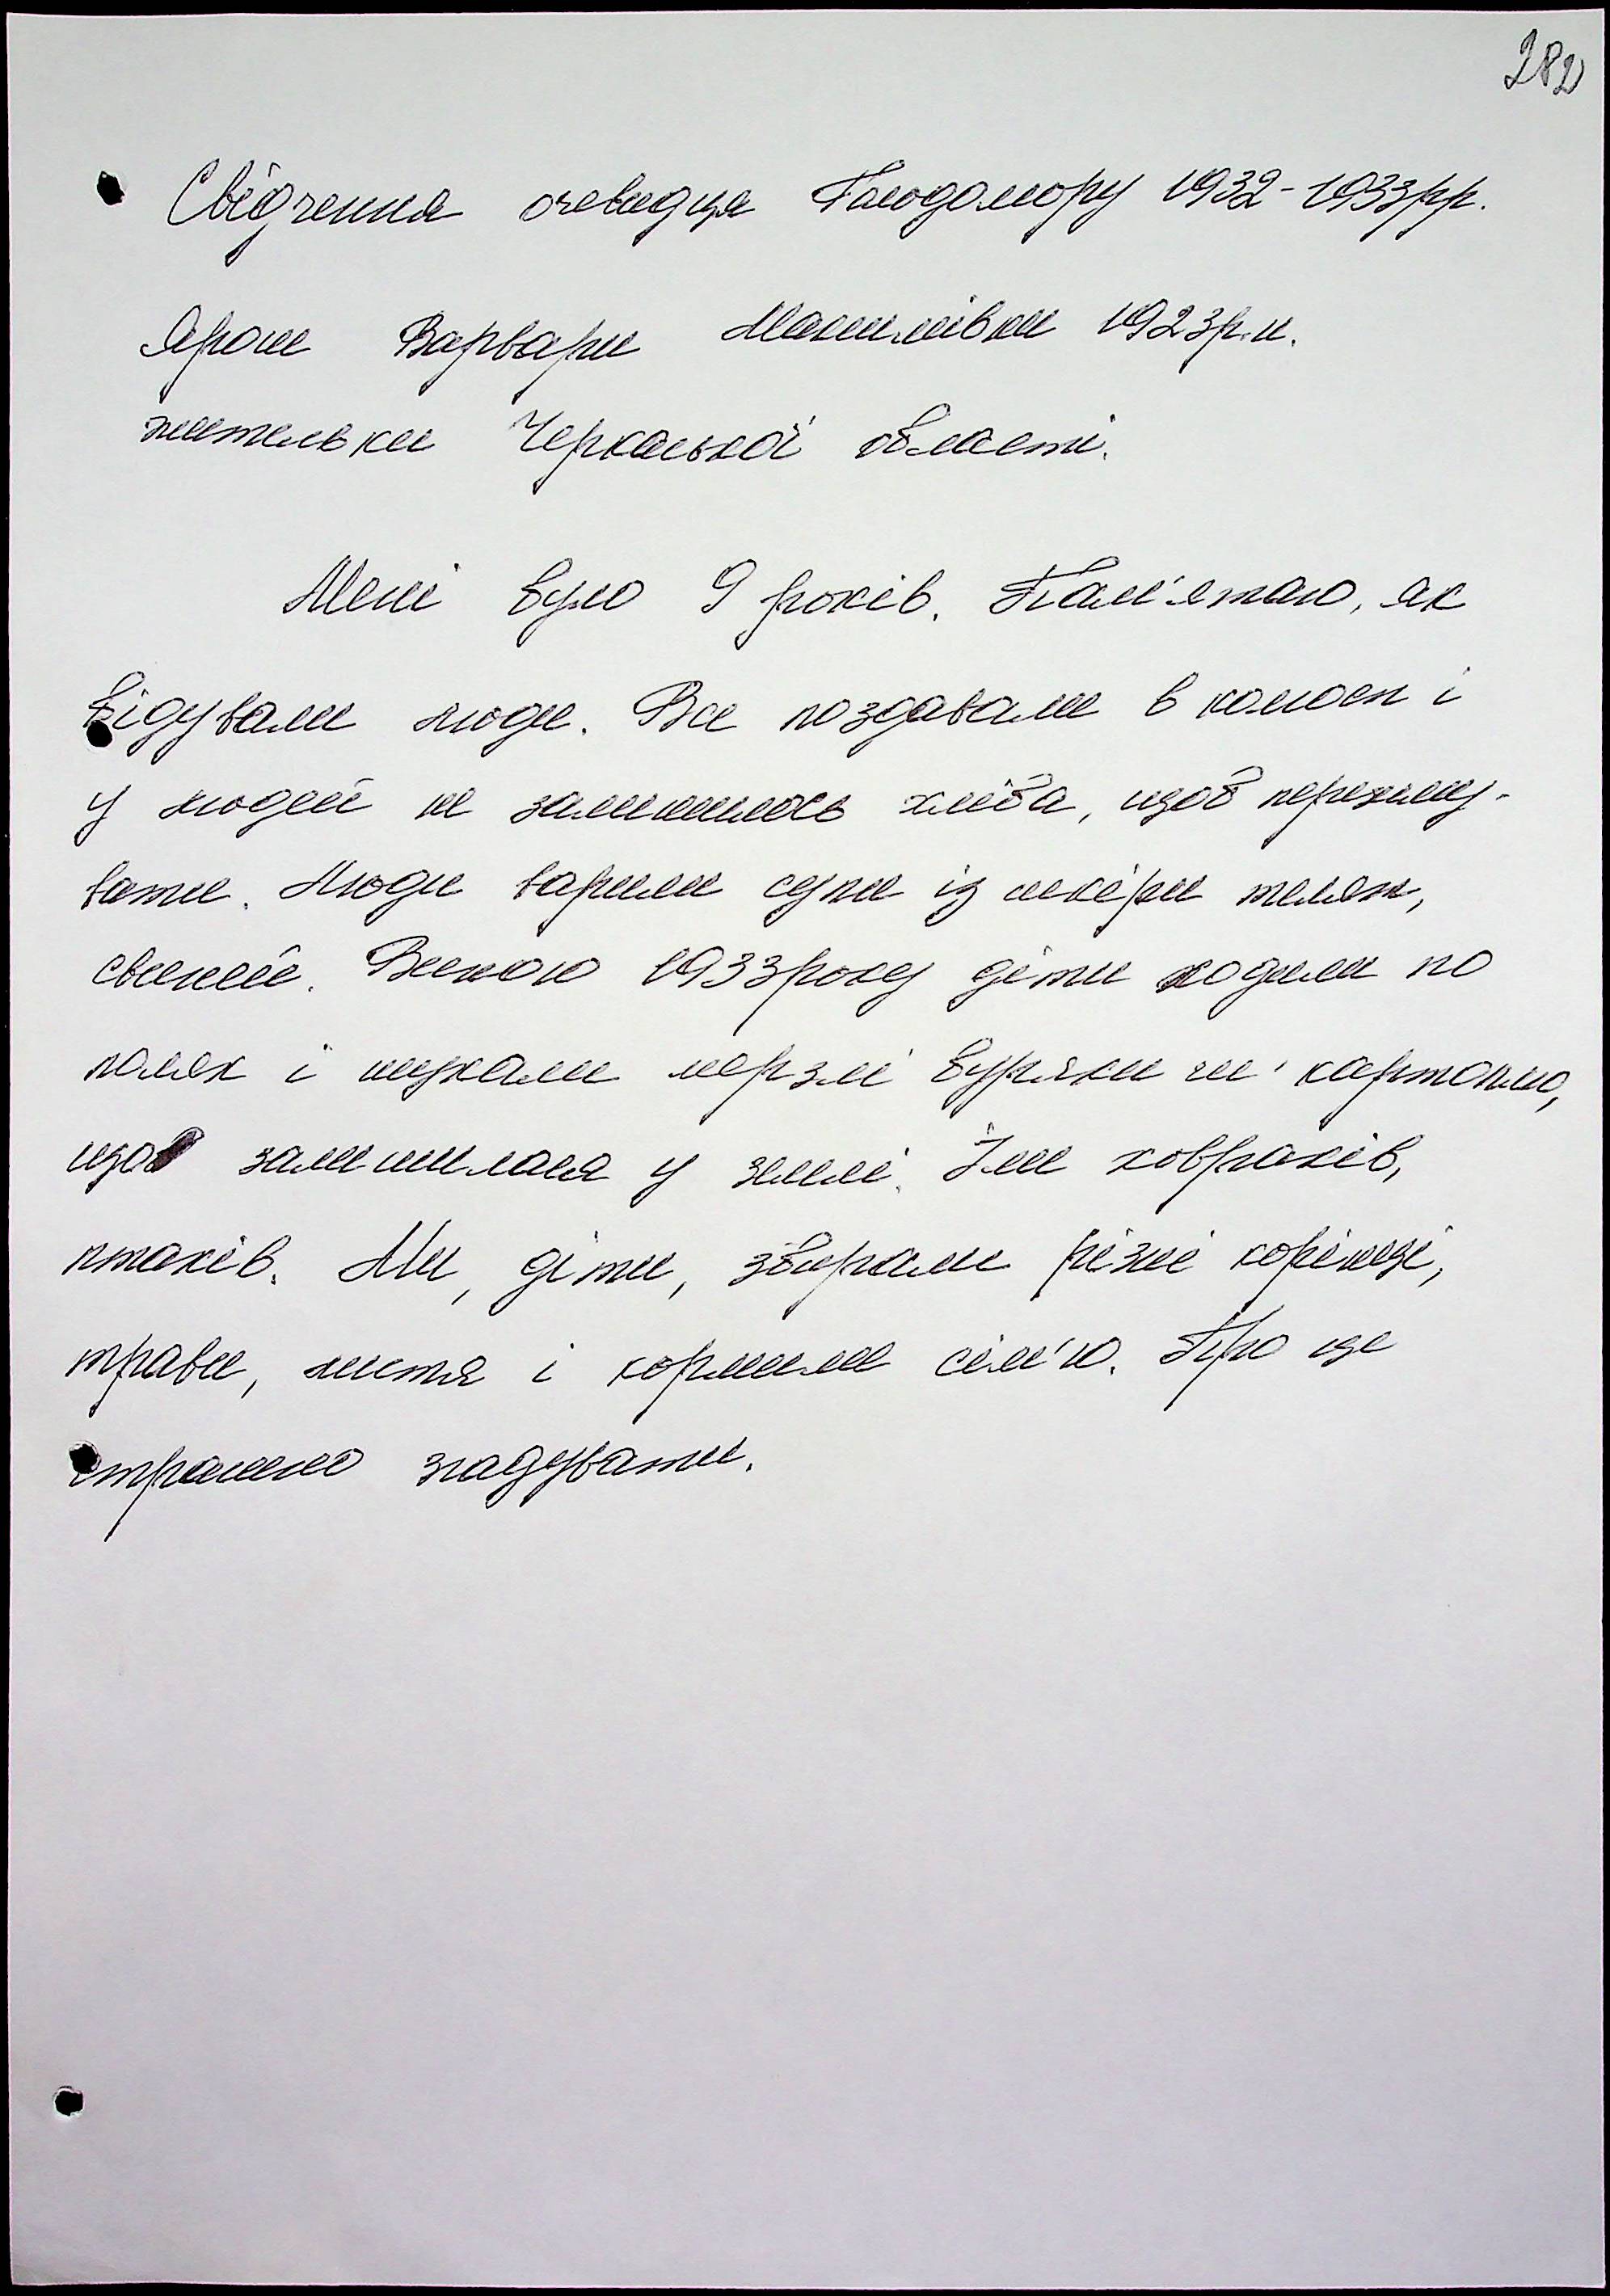 282
Свідчення очевидця Голодомору 1932-1933рр.
Ярош Варвари Максимівни 1923р.н.
жительки Черкаської області.
Мені було 9 років. Пам'ятаю, як
бідували люди. Все поздавали в колгосп і
у людей не залишилось хліба, щоб перезиму-
вати. Люди варили супи із шкіри телят,
свиней. Весною 1933року діти ходили по
полях і шукали мерзлі буряки чи картоплю,
що залишилася у землі. Їли ховрахів,
птахів. Ми, діти, збирали різні корінці,
трави, листя і кормили сім'ю. Про це
страшно згадувати.